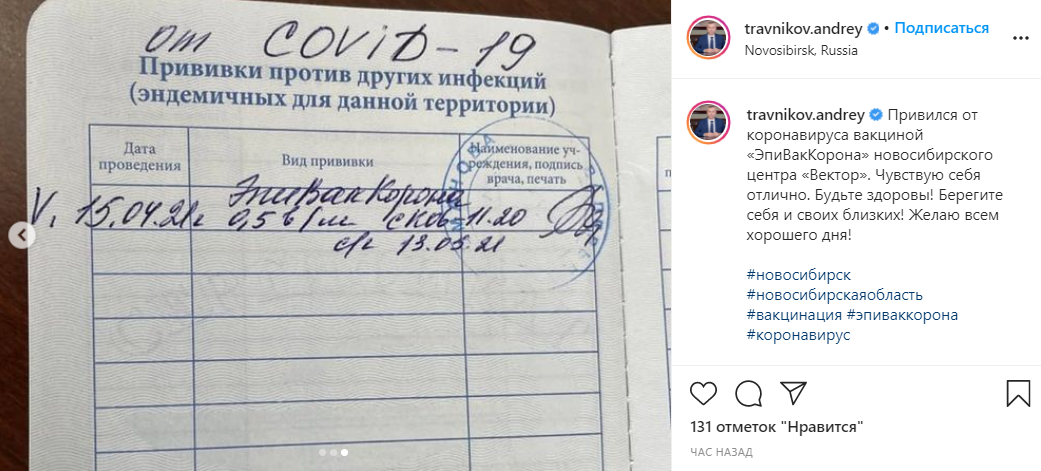 от COVID-19
Прививки против других инфекций
(эндемичных для данной территории)
Дата
проведения
Вид прививки
Наименование уч-
реждения, подпись
врача, печать
ЭпиВакКорона
V, 15.04.21г 0,5 в/м с КОВ-11.20
с/г 13.05.21
travnikov.andrey • Подписаться
Novosibirsk, Russia
travnikov.andrey Привился от
коронавируса вакциной
«ЭпиВакКорона» новосибирского
центра «Вектор». Чувствую себя
отлично. Будьте здоровы! Берегите
себя и своих близких! Желаю всем
хорошего дня!
#новосибирск
#новосибирскаяобласть
#вакцинация #эпиваккорона
#коронавирус
131 отметок "Нравится"
ЧАС НАЗАД